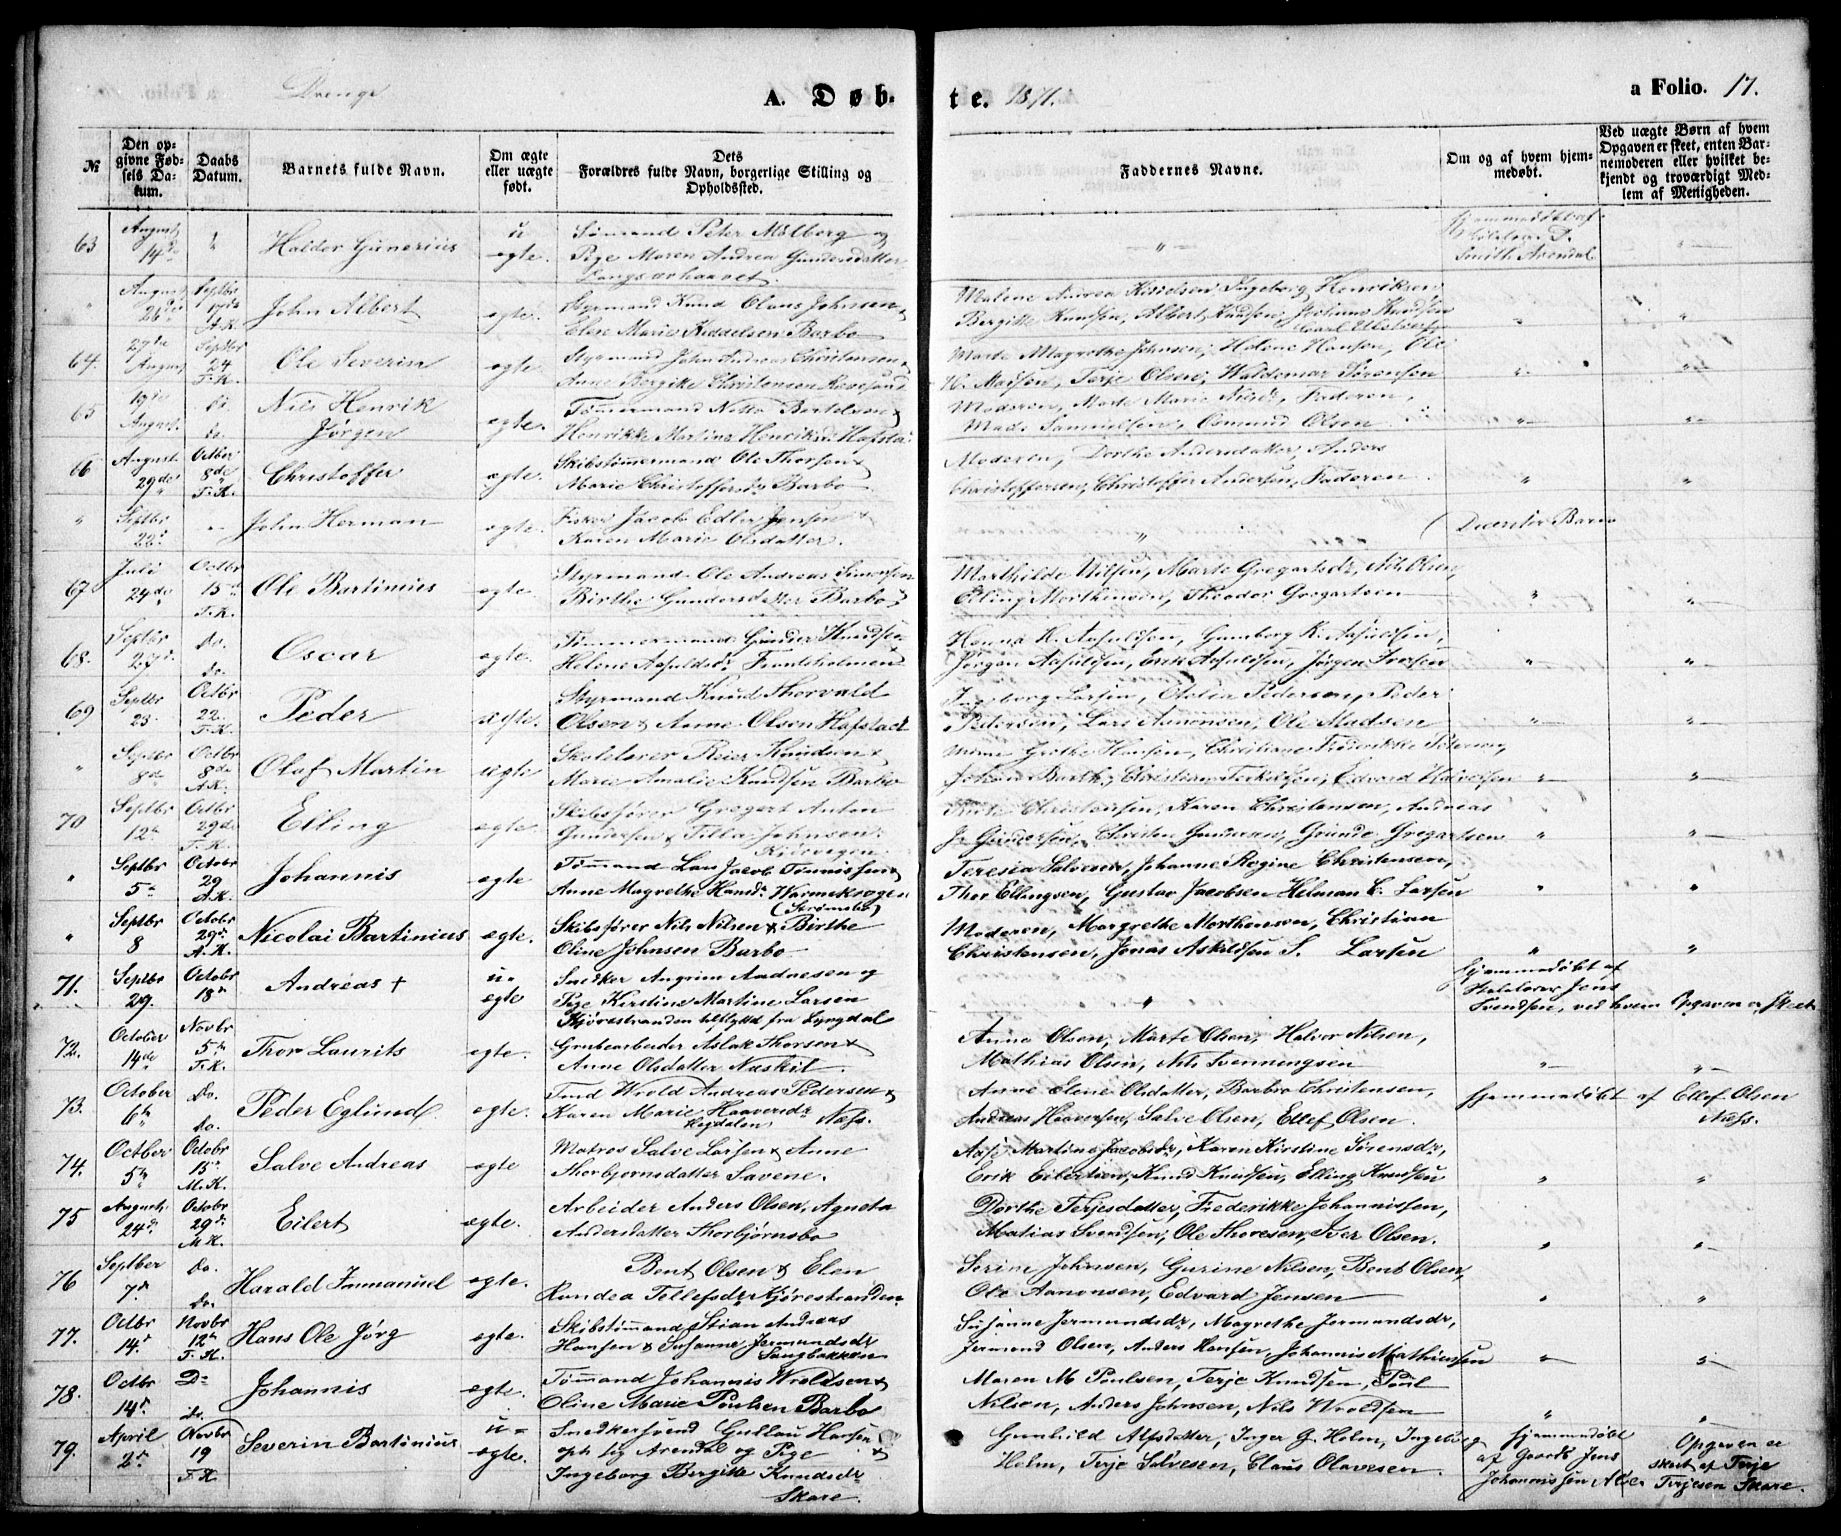 Drenge
A. Døb-
te. 1871.
a Folio. 17.
№
Den op-
givne Fød-
sels Da-
tum.
Daabs
Datum.
Barnets fulde Navn.
Om ægte
eller uægte
født.
Dets
Forældres fulde Navn, borgerlige Stilling og
Opholdssted.
Faddernes Navne.
Om og af hvem hjem-
medøbt.
Ved uægte Børn af hvem
Opgaven er skeet, enten Bar-
nemoderen eller hvilket be-
kjendt og troværdigt Med-
lem af Menigheden.
63 August 14de Halder Gunerius u ægte. Sømand Peter Mölberg og
Pige Maren Andrea Gundersdatter
hjemmedøbt af
Smith Arendal
August 26de Septbr 17de A.K. John Albert ægte. Styrmand Knud Olaus Johnsen &
Elen Marie Kiddelsen Barbo
Malene Andrea Kittelsen, Ingeborg Henriksen
Bergitte Knudsen, Albert Knudsen, Jochum Knudsen
64. 27de August Septbr 24 T.K. Ole Severin ægte. Styrmand John Andreas Christensen &
Anne Bergitte Christensen Revesand
Marte Magrethe Johnsen, Helene Hansen, Ole
H. Madsen, Terje Olsen, Waldemar Sörensen
65 19de August. do. do. Nils Henrik
Jørgen ægte. Tømmermand Bertelsen &
Henrikke Martine Henriksd:
Moderen, Marte Marie Nilsd:, Faderen,
Mads Samuelsen, Osmund Olsen
66 August 29de Octbr 8de T.K. Christoffer ægte. Skibstømmermand Ole Thorsen &
Marie Christoffersd: Barbo
Moderen, Dorthe Andersdatter, Anders
Christoffersen, Christoffer Andersen, Faderen.
" Septbr 22de John Herman ægte. Fisker Jacob Edler Jensen &
Karen Marie Olsdatter.
Decenter Barn
67 Juli 24de Octbr 15de T.K. Ole Bartinius ægte. Styrmand Ole Andreas Simonsen
Birthe Gundersdatter Barbo
Marthilde Nilsen, Marte Gregartsd:, Nils Olsen,
Elling Morthensen, Theodor Gregartsen
68. Septbr 27d. do. do. Oscar ægte. Tømmermand Gunder Knudsen
Helene Aasuldsd:
Hanna K. Aasuldsen, Gunborg K. Aasuldsen,
Jørgen Aasuldsen, Erik Aasuldsen, Jørgen Iversen
69 Septbr 23. Octbr 22. T.K. Peder ægte. Styrmand Knud Thorvald
Olsen & Anne Olsen Hafstad
Ingeborg Larsen, Pedersen, Peder
Pedersen, Lars Aanonsen, Ole Madsen
" Septbr 8de Octbr 8de A.K. Olaf Martin ægte Skolelærer Reier Knudsen &
Marie Amalie Knudsen Barbo
Grethe Hansen, Christiane Frederikke Petersen,
Johan Barth, Christian Terkelsen, Edvard Halvorsen
70 Septbr 12te Octbr 29de T.K. Elling ægte. Skibsfører Gregert Anton
Gundersen & Tilla Johnsen
Christensen, Karen Christensen, Andreas
J. Gundersen, Christen Gundersen, Gunde Gregartsen
" Septbr 5te October 29 A.K. Johannis ægte Tømmand Lars Jacob Tønnissen &
Anne Magrethe Hansd:
(Strømsbo)
Teresia Salvesen, Johanne Regine Christensen,
Thor Ellingsen, Gustav Jacobsen Helman C. Larsen
" Septbr 8 Octobr 29de A.K. Nicolai Bartinius ægte. Skibsfører Nils Nilsen & Birthe
Oline Johnsen Barbo
Moderen, Margrethe Morthensen, Christian
Christensen, Jonas Askildsen S. Larsen
71. Septbr 29. Octobr 18de Andreas + u- ægte Snedker Angrim Andresen og
Pige Kirstine Martine Larsen
Kjørestranden tilflytd fra Lyngdal
hjemmedøbt af
Skolelærer Jens
Svendsen, ved hvem Opgaven er skeet
72. October 14de Novbr 5te T.K. Thor Laurits ægte. Grubearbeider Aslak Thorsen &
Anne Olsdatter Næskil.
Anne Olsen, Marte Olsen, Halvor Nilsen,
Mathias Olsen, Nils Svenningsen
73. October 6te Do. do. Peder Eglund ægte. Tmd Wrold Andreas Pedersen &
Karen Marie Haaversd:
Høgdalen, Næss.
Anne Elene Olsdatter, Barbro Christensen,
Andreas Haaversen, Salve Olsen, Ellef Olsen.
hjemmedøbt af Ellef Olsen
Næss.
74. Octber 5te Octobr 15de M.K. Salve Andreas ægte Matros Salve Larsen & Anne
Thorbjørnsdatter Savene.
Aase Martine Jacobsd:, Karen Kirstine Sørensd:,
Erik Eilertsen, Knud Knudsen, Elling Knudsen
75 August 24d. Octobr 29d. M.K. Eilert ægte. Arbeider Anders Olsen, Agneta
Andersdatter Thorbjørnsbo
Dorthe Terjesdatter, Frederikke Johannissen,
Matias Svendsen, Ole Thoresen, Iver Olsen.
76 Septber 7de do. do. Harald Immanuel ægte. Bent Olsen & Elen
Randea Tellefsd: Kjørestranden.
Serine Johnsen, Gurine Nilsen, Bent Olsen,
Ole Aanonsen, Edvard Jensen
77. Octbr 14d. Novbr 12te T.K. Hans Ole Jørg ægte. Skibstømmand Stian Andreas
Hansen & Susanne Jermundsdr
Sangbakken
Susanne Jermundsdr, Magrethe Jermundsdr,
Jermund Olsen, Anders Hansen, Johannis Mathiesen
78. Octbr 14de Do do. Johannis ægte. Tømmand Johannis Wroldsen &
Oline Marie Poulsen Barbo
Maren M Poulsen, Terje Knudsen, Poul
Nilsen, Anders Johnsen, Nils Wroldsen
79. April 2de Novbr 19 T.K. Severin Bartinius u- ægte. Snedkersvend Gullau Hansen
oph sig Arendal og Pige
Ingeborg Bergitte Knudsdr
Skare.
Gunhild Alfsdatter, Inger G. Holm, Ingeborg
Holm, Terje Salvesen, Claus Olavesen.
hjemmedøbt
af Gaardb Jens
Johannissen
Opgaven er
skeet af Terje
Terjesen Skare.